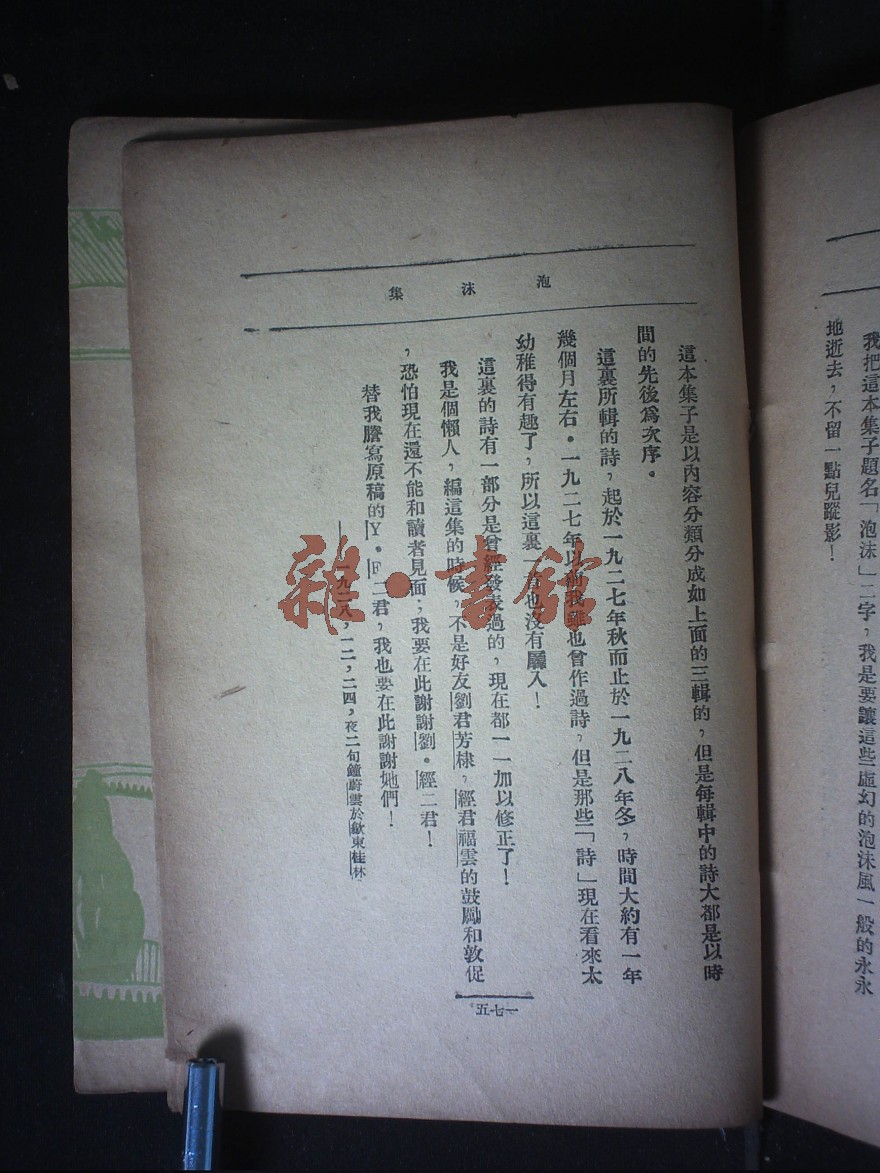 我把這本集子題名「泡沫」二字，我是要讓這些虛幻的泡沫風一般的永永
地逝去，不留一點兒蹤影！
泡沫集
這本集子是以內容分類分成如上面的三輯的，但是每輯中的詩大都是以時
間的先後為次序。
這裏所輯的詩，起於一九二七年秋而止於一九二八年冬，時間大約有一年
幾個月左右。一九二七年以前我雖也曾作過詩，但是那些「詩」現在看來太
幼稚得有趣了，所以這裏一首也沒有羼入！
這裏的詩有一部分是曾經發表過的，現在都一一加以修正了！
我是個懶人，編這集的時候，不是好友劉君芳棣，經君福雲的鼓勵和敦促
，恐怕現在還不能和讀者見面；我要在此謝謝劉。經二君！
替我謄寫原稿的Y。F二君，我也要在此謝謝她們！
——一九二八，一二，二四，夜二句鐘蔚雲於歙東桂林
一七五
雜·書館